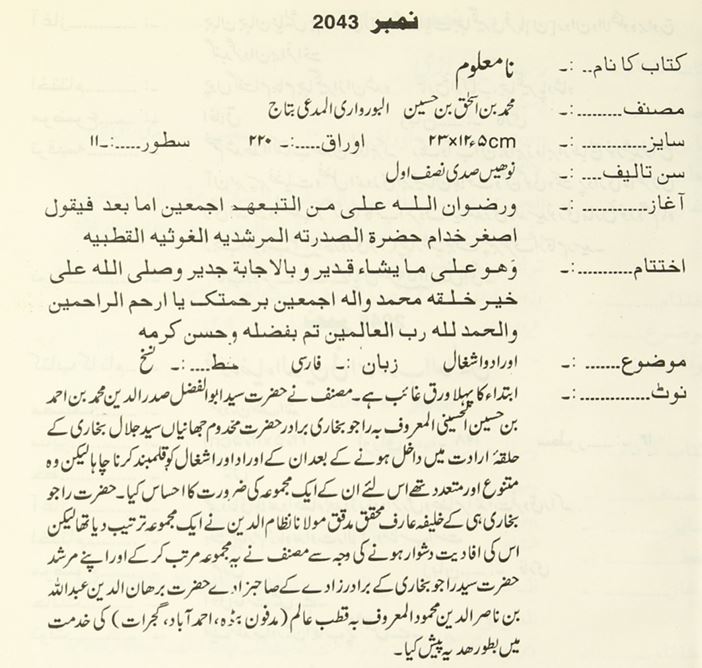 نمبر 2043
کتاب کا نام.. :۔ نامعلوم
مصنف.........:۔ محمد بن الحق بن حسین البورواری المدعی بتاج
سایز...........:۔ ۲۳×۱۲ء۵cm اوراق.....:۔ ۲۲۰ سطور.....:۔۱۱
سن تالیف..... :۔ نوھیں صدی نصف اول
آغاز........... :۔ ورضوان اللہ علی من التبعهد اجمعین اما بعد فیقول
اصغر خدام حضرة الصدرته المرشدیه الغوثیه القطبیه
اختتام..........:۔ وَهو علی ما یشاء قدیر و بالاجابة جدیر وصلی الله علی
خیر خلقه محمد واله اجمعین برحمتک یا ارحم الراحمین
والحمد لله رب العالمین تم بفضله وحسن کرمه
موضوع....... :۔ اوراد واشغال زبان :۔ فارسی خط....:۔ نسخ
نوٹ.............:۔ ابتداء کا پہلا ورق غائب ہے۔ مصنف نے حضرت سید ابوالفضل صدر الدین محمد بن احمد
بن حسین الحسینی المعروف بہ راجو بخاری برادر حضرت مخدوم جہانیاں سید جلال بخاری کے
حلقۂ ارادت میں داخل ہونے کے بعد ان کے اوراد اور اشغال کو قلمبند کرنا چاہا لیکن وہ
متنوع اور متعدد تھے اس لئے ان کے ایک مجموعہ کی ضرورت کا احساس کیا۔ حضرت راجو
بخاری ہی کے خلیفہ عارف محقق مدقق مولانا نظام الدین نے ایک مجموعہ ترتیب دیا تھا لیکن
اس کی افادیت دشوار ہونے کی وجہ سے مصنف نے یہ مجموعہ مرتب کر کے اور اپنے مرشد
حضرت سید راجو بخاری کے برادر زادے کے صاحبزادے حضرت برھان الدین عبداللہ
بن ناصر الدین محمود المعروف بہ قطب عالم (مدفون بٹوہ، احمد آباد، گجرات) کی خدمت
میں بطور ھدیہ پیش کیا۔